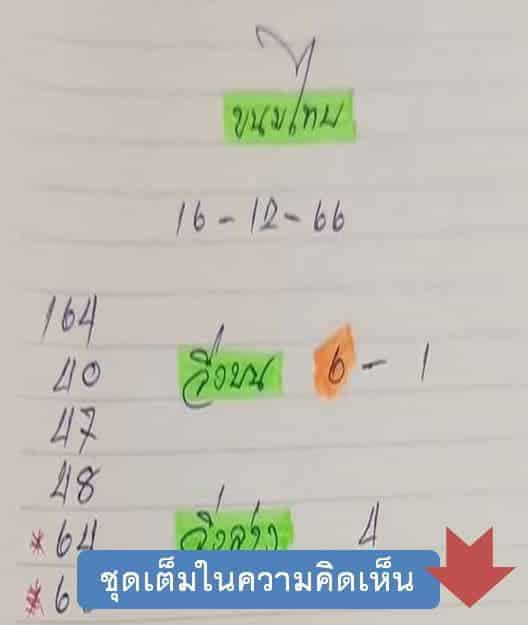 ขนมไทย
16-12-66
164
40 วิ่งบน 6-1
47
48
*64 วิ่งล่าง 4
*6
ชุดเต็มในความคิดเห็น